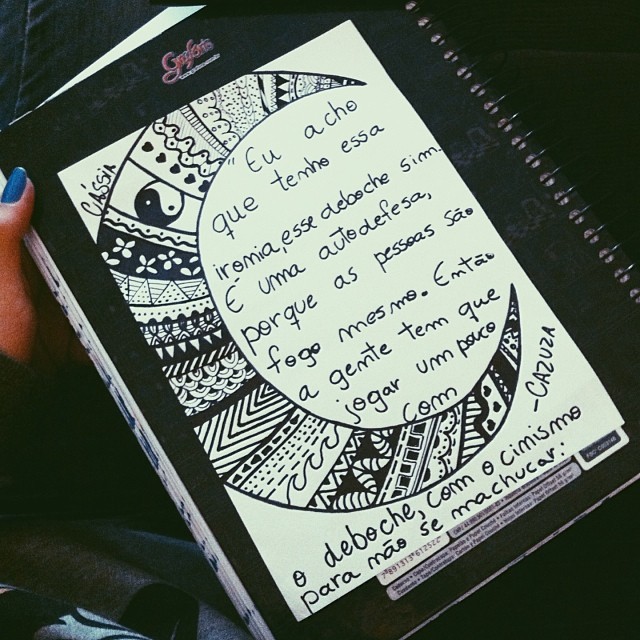 Grafon's
CÁSSIA
"Eu acho
que tenho essa
ironia, esse deboche sim.
É uma autodefesa,
porque as pessoas são
fogo mesmo. Então
a gente tem que
jogar um pouco
com
o deboche, com o cinismo
para não se machucar.
-CAZUZA
7 891313 612522